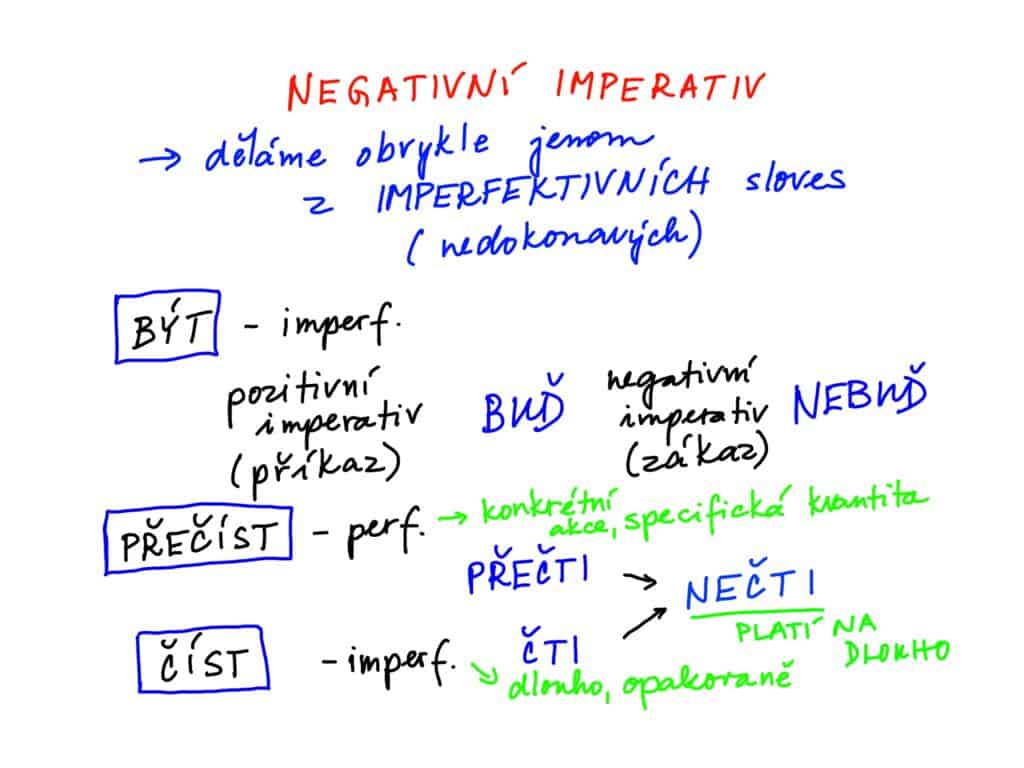 NEGATIVNÍ IMPERATIV
→ děláme obvykle jenom
z IMPERFEKTIVNÍCH sloves
(nedokonavých)
BÝT - imperf.
pozitivní
imperativ
(příkaz)
BUĎ
negativní
imperativ
(zákaz)
NEBUĎ
PŘEČÍST - perf. → konkrétní
akce, specifická kvantita
PŘEČTI → NEČTI
PLATÍ NA
DLOUHO
ČÍST - imperf. ČTI →
dlouho, opakovaně